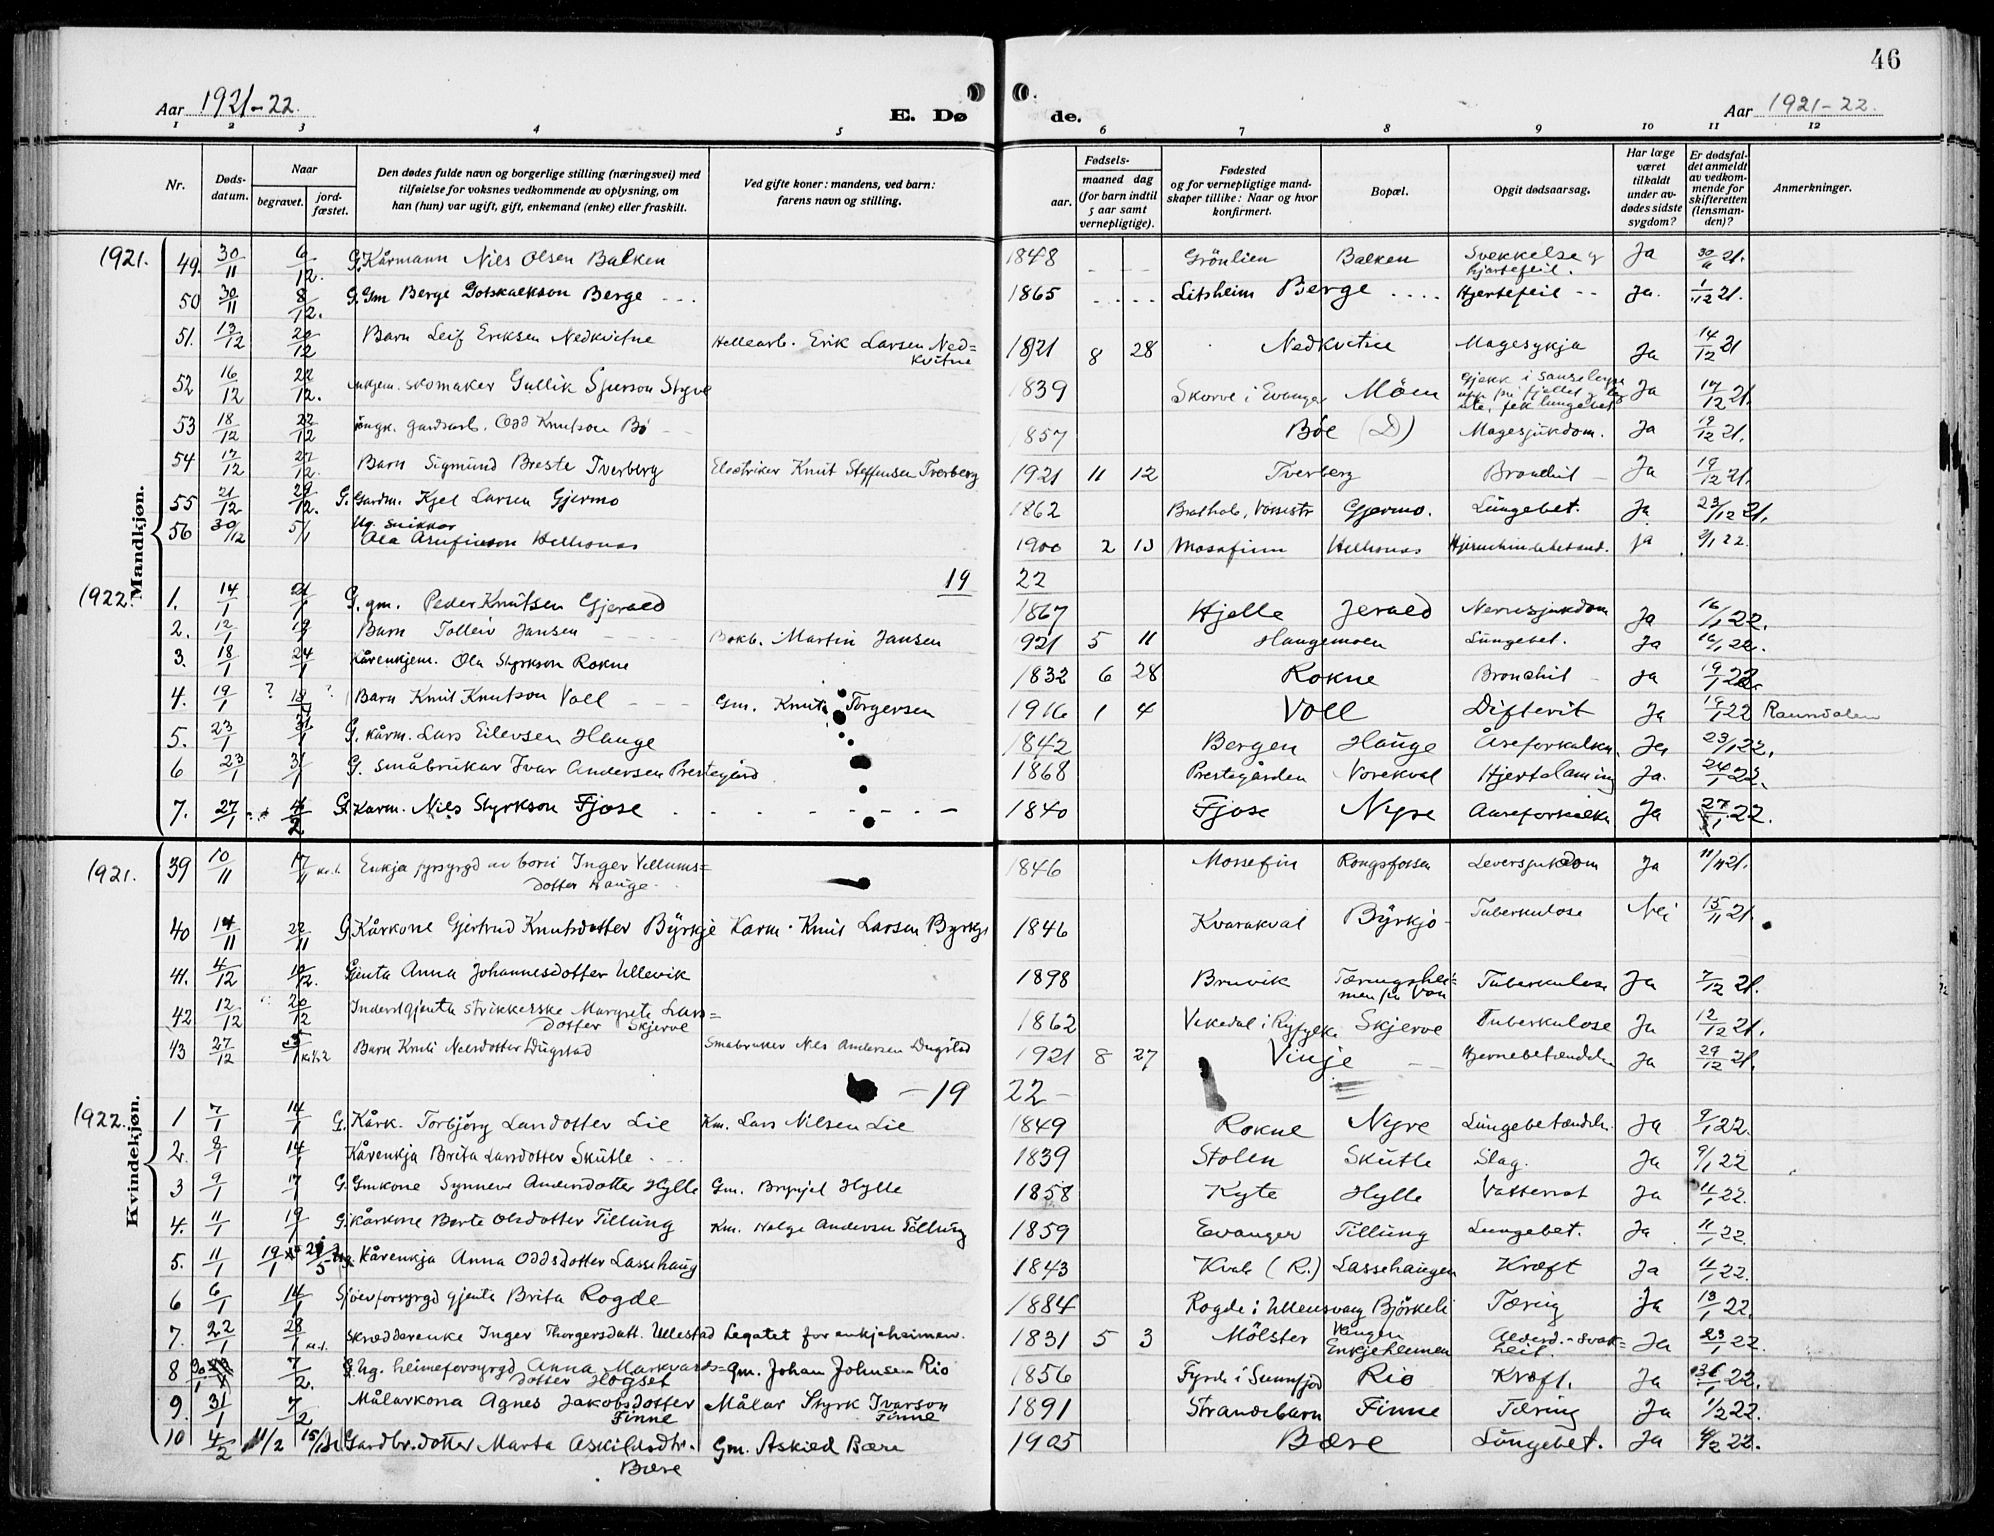 46
Aar 1921-22.
E. Døde.
Aar 1921-22.
1 2 3 4 5 6 7 8 9 10 11 12
Nr.
Døds-datum.
Naar
begravet.
jord-fæstet.
Den dødes fulde navn og borgerlige stilling (næringsvei) med tilføielse for voksnes vedkommende av oplysning, om han (hun) var ugift, gift, enkemand (enke) eller fraskilt.
Ved gifte koner: mandens, ved barn: farens navn og stilling.
Fødsels-
aar.
maaned dag
(for barn indtil 5 aar samt vernepligtige).
Fødested og for vernepligtige mand-skaper tillike: Naar og hvor konfirmert.
Bopæl.
Opgit dødsaarsag.
Har læge været tilkaldt under av-dødes sidste sygdom?
Er dødsfal-det anmeldt av vedkom-mende for skifteretten (lensman-den)?
Anmerkninger.
Mandkjøn.
1921.
49. 30/11 6/12. G. Kårmann Nils Olsen Balken 1848 Grönlien Balken Svekkelse og hjartefeil. Ja
50 30/11 8/12. G. Gm Berge Gotskalkson Berge 1865 Litsheim Berge Hjertefeil Ja. 1/12 21.
51. 13/12 20/12 Barn Leif Eriksen Nedkvitne Hellearb. Erik Larsen Ned=kvitne 1921 8 28 Nedkvitne Magesykja Ja 14/12 21
52 16/12 22/12. Enkjem. skomaker Gullik Sjurson Styve 1839 Skorve i Evanger Möen Ja 17/12 21.
53 18/12 22/12 gardsarb. Odd Knutson Bö 1857 Böe (D) Magesjukdom. Ja 19/12 21.
54 17/12 27/12. Barn Sigmund Breste Tverberg Electriker Knut Steffensen Tverberg 1921 11 12 Tverberg Bronchit Ja 19/12 21.
55 21/12 29/12. G. Gardm. Kjel Larsen Gjermo 1862 Brathole, Vossestr Gjermo. Lungebet. Ja 23/12 21.
56 30/12 5/1 Ug. snikkar Ola Arnfinson Helhonas 1900 2 13 Mosafinn Helhonas Ja 3/1 22.
1922. 19 22
1. 14/1 21/1 G. gm. Peder Knutsen Gjerald 1867 Hjelle Jerald Nervesjukdom Ja 16/1 22.
2. 12/1 19/1 Barn Tolleiv Jansen Bokb. Martin Jansen 921 5 11 Haugemoen Lungebet. Ja 16/1 22.
3. 18/1 24/1 Kårenkjem. Ola Styrkson Rokne 1832 6 28 Rokne Bronchit Ja 19/1 22.
4. 19/1 ? 18/1 ? Barn Knut Knutson Voll Gm. Knut Torgersen 1916 1 4 Voll Difterit Ja 19/1 22 Raundalen
5. 23/1 31/1 G. kårm. Lars Eilevsen Hauge 1842 Bergen Hauge Åreforkalkn. Ja 23/1 22.
6 23/1 31/1 G. småbrukar Ivar Andersen Prestegård 1868 Prestegården Vorekval Hjertelaming Ja. 24/1 22.
7. 27/1 4/2 G. Karm. Nils Styrkson Fjose 1840 Fjose Nyre Aareforkalkn Ja 27/1 22.
Kvindekjøn.
1921.
39 10/11 17/11 kr.1. Enkja fyrsyrgd av born Inger Villums=dotter Hauge 1846 Mossefin Rongsfossen Leversjukdom Ja 11/11 21.
40 14/11 22/11 G. Kårkone Gjertrud Knutsdotter Byrkje Karm. Knut Larsen Byrkje 1846 Kvarakval Byrkjo Tuberkulose Nei 15/11 21.
41. 4/12 10/12. Gjenta Anna Johannesdotter Ullevik 1898 Bruvik Tæringshei=men på Voss Tuberkulose Ja 7/12 21.
42 12/12 20/12 Inderstgjenta strikkerske Margreta Lars=dotter Skjerve 1862 Vikedal i Ryfylke Skjerve Tuberkulose Ja 12/12 21.
43 27/12 5/1 Barn Knut Nilsdotter Dugstad Småbruker Nils Andersen Dugstad 1921 8 27 Vinje Hjernebetændelse Ja 29/12 21.
1922. 19 22
1 7/1 14/1 G. Kårk. Torbjörg Larsdotter Lie Km. Lars Nilsen Lie 1849 Rokne Nyre Lungebetændelse Ja 9/1 22.
2. 8/1 14/1 Kårenkja Brita Larsdotter Skutle 1839 Stolen Skutle Slag. Ja 9/1 22
3 9/1 17/1 G. Gmkone Synneve Andersdotter Hylle Gm. Brynjel Hylle 1858 Kyte Hylle Vattersot Ja 11/1 22.
4. 11/1 19/1 G. Kårkone Barte Olsdotter Tillung Km. Helge Andersen Tillung 1859 Evanger Tillung Lungebet. Ja 11/1 22.
5. 11/1 19/1 Kårenkja Anna Oddsdotter Lassehaug 1843 Kvale (R.) Lassehaugen Kræft Ja 11/1 22.
6 6/1 14/1 Sjölvforsyrgd gjenta Brita Rogde 1884 Rogde i Ullensvang Björkeli Tæring Ja 13/1 22.
7. 22/1 28/1 kr.1. Skrædderenke Inger Thorgersdatt. Ullestad Legatet for enkjeheimen. 1831 5 3 Mölster Vangen Enkjeheimen Alderd.-svak=heit. Ja 23/1 22.
8 30/1 7/2. G. hg. heimeforsyrgd Anna Markvards=dotter Hogset Gm. Johan Johnsen Rio 1856 Fyrde i Sunnfjord Rio Kræft. Ja
9. 31/1 7/2 Målarkona Agnes Jakobsdotter Finne Målar Styrk Ivarson Finne 1891 Strandebarn Finne Tæring Ja 1/2 22.
10 4/2 11/2 15/ Gardbr.dotter Marta Askildsdtr. Bære Gm. Askied Bære 1905 Bære Lungebet. Ja 6/2 22.